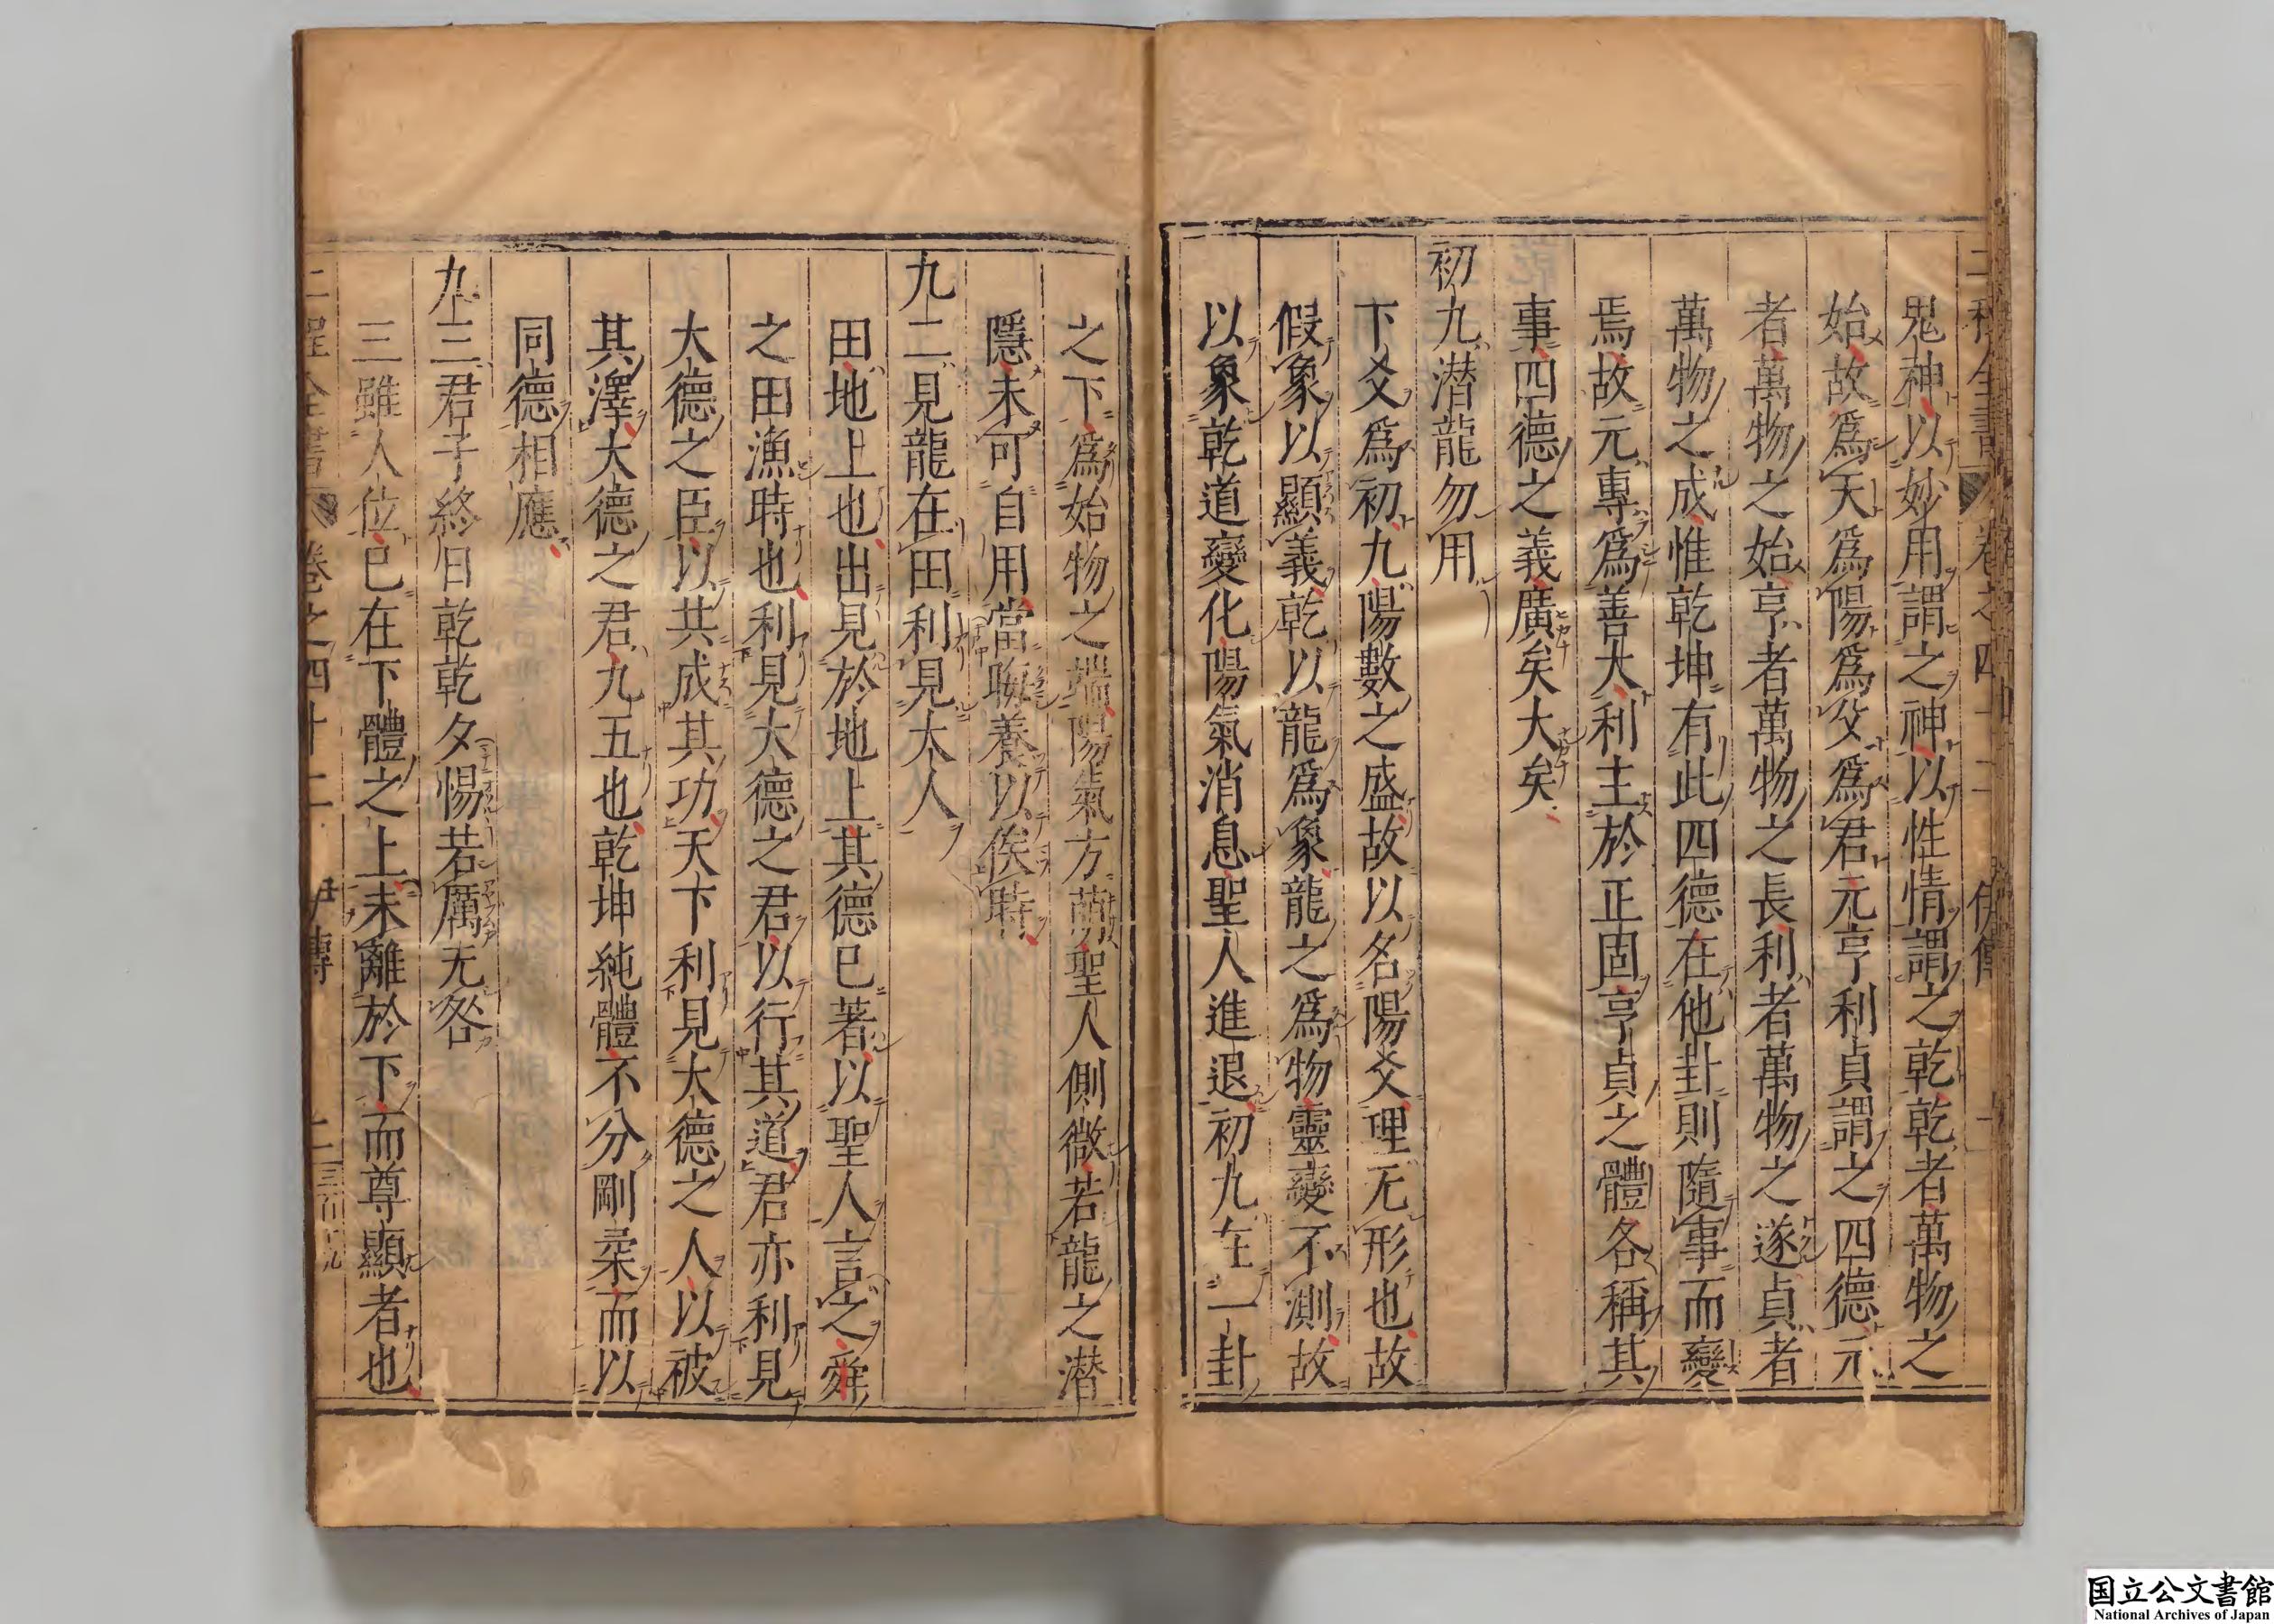 二程全書 卷之四十二 伊傳 一
鬼神以妙用謂之神以性情謂之乾乾者萬物之
始故爲天爲陽爲父爲君元亨利貞謂之四德元
者萬物之始亨者萬物之長利者萬物之遂貞者
萬物之成惟乾坤有此四德在他卦則隨事而變
焉故元專爲善大利主於正固亨貞之體各稱其
事四德之義廣矣大矣
初九潜龍勿用
下爻爲初九陽數之盛故以名陽爻理无形也故
假象以顯義乾以龍爲象龍之爲物靈變不測故
以象乾道變化陽氣消息聖人進退初九在一卦
之下爲始物之端陽氣方萌聖人側微若龍之潜
隱未可自用當晦養以俟時
九二見龍在田利見大人
田地上也出見於地上其德已著以聖人言之舜
之田漁時也利見大德之君以行其道君亦利見
大德之臣以共成其功天下利見大德之人以被
其澤大德之君九五也乾坤純體不分剛柔而以
同德相應
九三君子終日乾乾夕惕若厲无咎
三雖人位已在下體之上未離於下而尊顯者也
二程全書 卷之四十二 伊傳 二
国立公文書館
National Archives of Japan